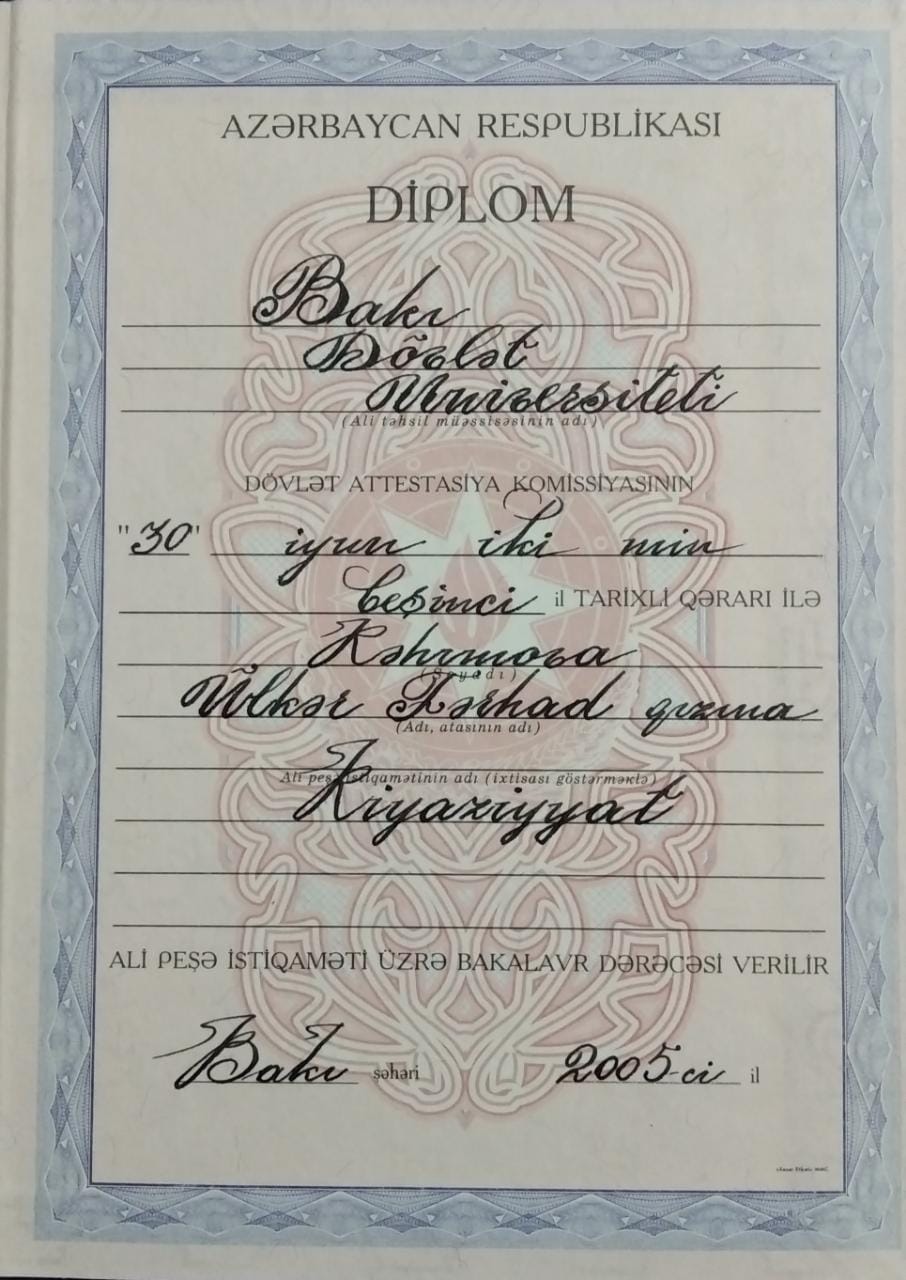 AZƏRBAYCAN RESPUBLİKASI
DİPLOM
Bakı
Dövlət
Universiteti
(Ali təhsil müəssisəsinin adı)
DÖVLƏT ATTESTASİYA KOMİSSİYASININ
"30" iyun iki min
beşinci il TARİXLİ QƏRARI İLƏ
Rəhimova
(Soyadı)
Ülkər Fərhad qızına
(Adı, atasının adı)
Ali peşə istiqamətinin adı (ixtisası göstərməklə)
Riyaziyyat
ALİ PEŞƏ İSTİQAMƏTİ ÜZRƏ BAKALAVR DƏRƏCƏSİ VERİLİR
Bakı şəhəri 2005-ci il